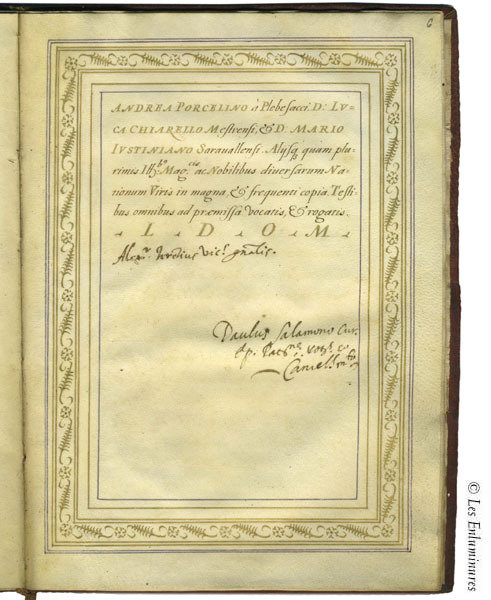 6
ANDREA PORCELINO à Plebesacci. D: LV-
CA CHIARELLO Mestrensi, & D. MARIO
IVSTINIANO Sarauallensi. Alysq; quam plu-
rimis Ill.bus Mag.cis ac Nobilibus diuersarum Na-
tionum Viris in magna & frequenti copia. Testi-
bus omnibus ad præmissa vocatis, & rogatis.
L D O M
Vic.s gnalis.
Paulus Salamono Cur.
Canc.
© Les Enluminures